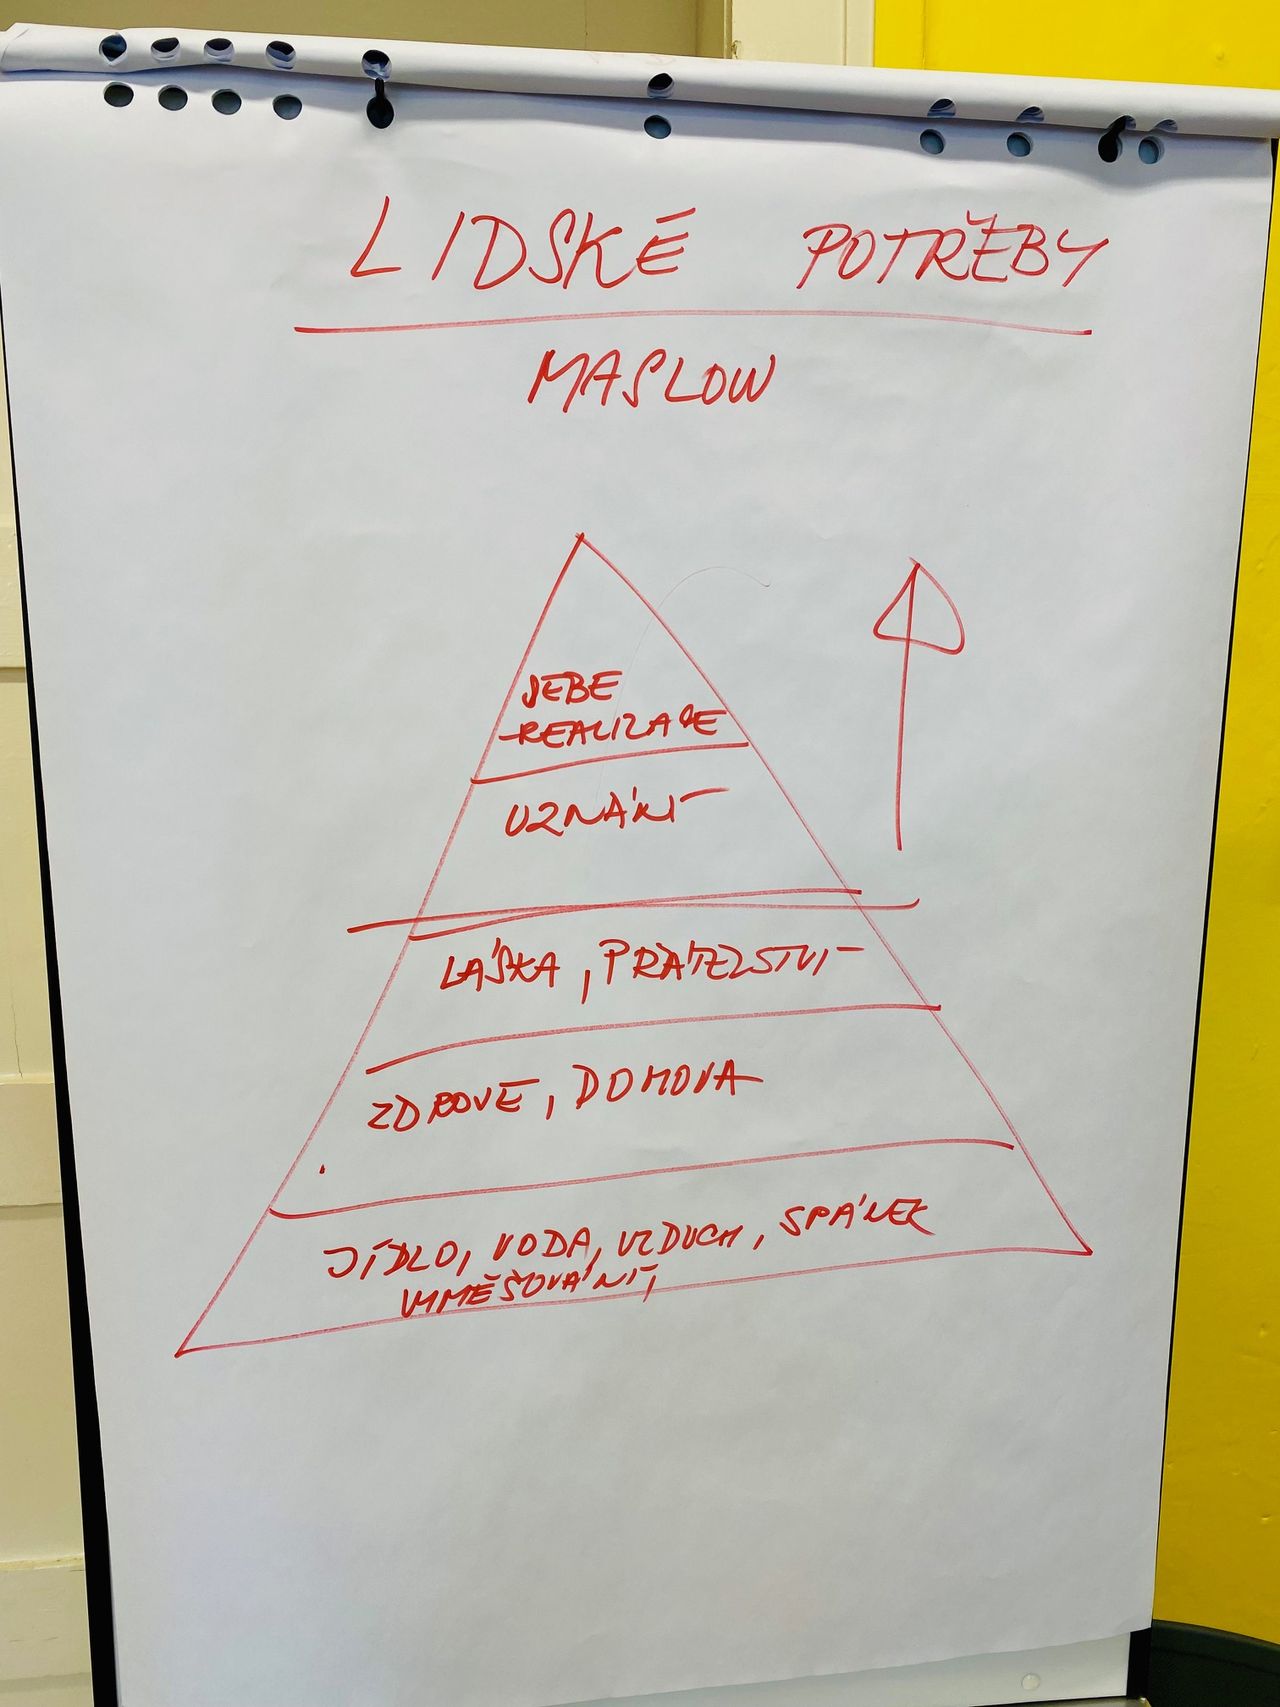 LIDSKÉ POTŘEBY
MASLOW
SEBE
-REALIZACE
UZNÁNÍ
LÁSKA, PŘÁTELSTVÍ
ZDRAVÉ, DOMOVA
JÍDLO, VODA, VZDUCH, SPÁNEK
VYMĚŠOVÁNÍ,